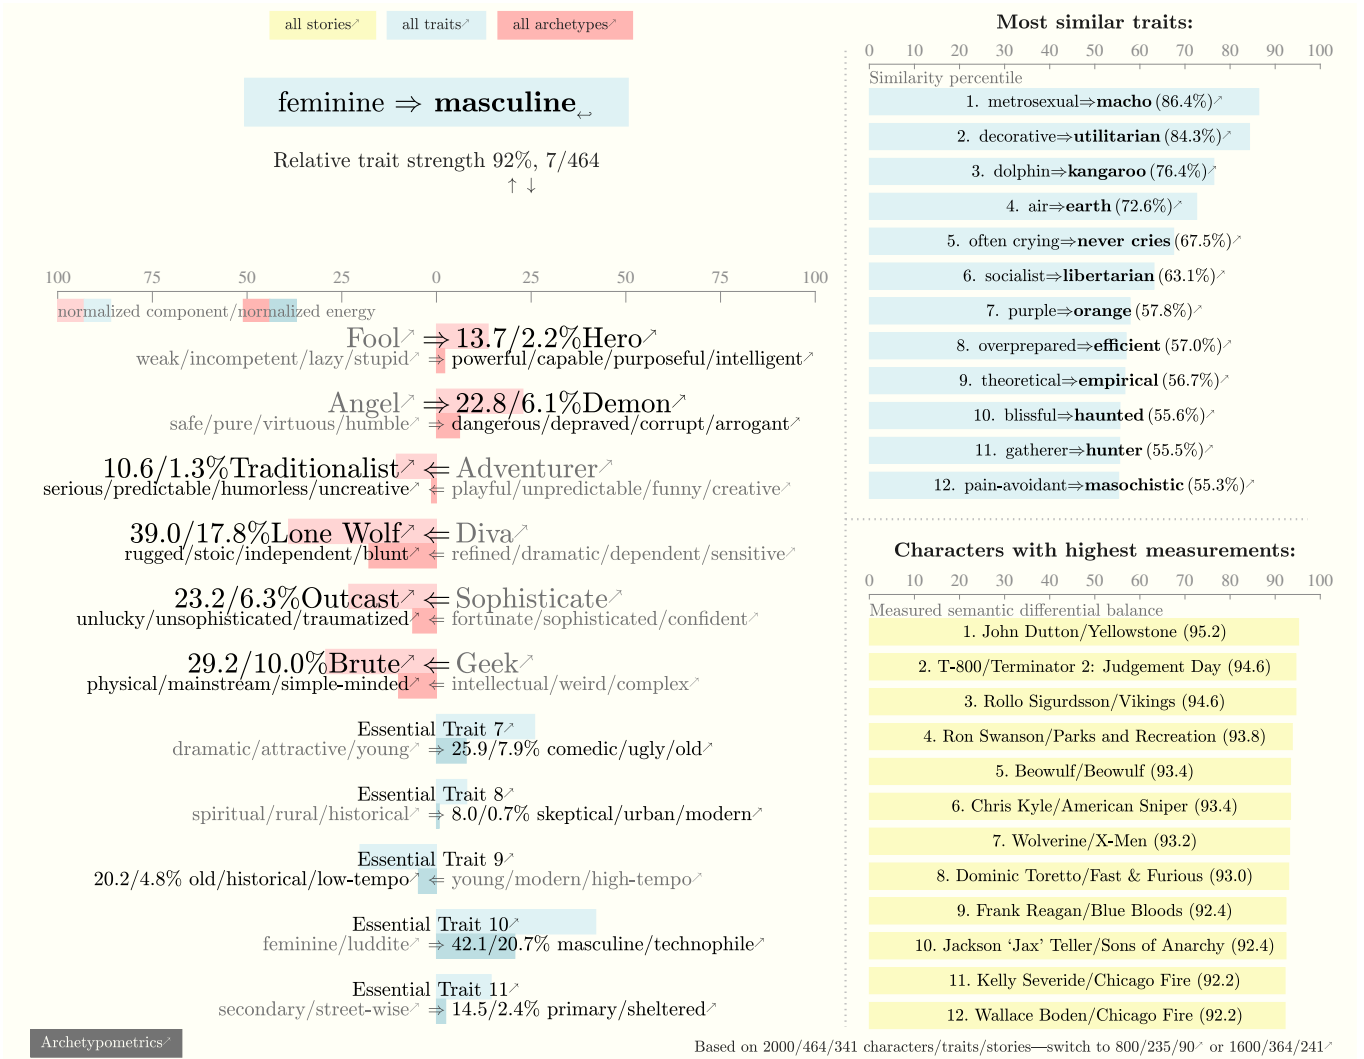 all stories↗ all traits↗ all archetypes↗
feminine ⇒ masculine↩
Relative trait strength 92%, 7/464
↑ ↓
100 75 50 25 0 25 50 75 100
normalized component/normalized energy
Fool↗ ⇒ 13.7/2.2%Hero↗
weak/incompetent/lazy/stupid↗ ⇒ powerful/capable/purposeful/intelligent↗
Angel↗ ⇒ 22.8/6.1%Demon↗
safe/pure/virtuous/humble↗ ⇒ dangerous/depraved/corrupt/arrogant↗
10.6/1.3%Traditionalist↗ ⇐ Adventurer↗
serious/predictable/humorless/uncreative↗ ⇐ playful/unpredictable/funny/creative↗
39.0/17.8%Lone Wolf↗ ⇐ Diva↗
rugged/stoic/independent/blunt↗ ⇐ refined/dramatic/dependent/sensitive↗
23.2/6.3%Outcast↗ ⇐ Sophisticate↗
unlucky/unsophisticated/traumatized↗ ⇐ fortunate/sophisticated/confident↗
29.2/10.0%Brute↗ ⇐ Geek↗
physical/mainstream/simple-minded↗ ⇐ intellectual/weird/complex↗
Essential Trait 7↗
dramatic/attractive/young↗ ⇒ 25.9/7.9% comedic/ugly/old↗
Essential Trait 8↗
spiritual/rural/historical↗ ⇒ 8.0/0.7% skeptical/urban/modern↗
Essential Trait 9↗
20.2/4.8% old/historical/low-tempo↗ ⇐ young/modern/high-tempo↗
Essential Trait 10↗
feminine/luddite↗ ⇒ 42.1/20.7% masculine/technophile↗
Essential Trait 11↗
secondary/street-wise↗ ⇒ 14.5/2.4% primary/sheltered↗
Archetypometrics↗
Most similar traits:
0 10 20 30 40 50 60 70 80 90 100
Similarity percentile
1. metrosexual⇒macho (86.4%)↗
2. decorative⇒utilitarian (84.3%)↗
3. dolphin⇒kangaroo (76.4%)↗
4. air⇒earth (72.6%)↗
5. often crying⇒never cries (67.5%)↗
6. socialist⇒libertarian (63.1%)↗
7. purple⇒orange (57.8%)↗
8. overprepared⇒efficient (57.0%)↗
9. theoretical⇒empirical (56.7%)↗
10. blissful⇒haunted (55.6%)↗
11. gatherer⇒hunter (55.5%)↗
12. pain-avoidant⇒masochistic (55.3%)↗
Characters with highest measurements:
0 10 20 30 40 50 60 70 80 90 100
Measured semantic differential balance
1. John Dutton/Yellowstone (95.2)
2. T-800/Terminator 2: Judgement Day (94.6)
3. Rollo Sigurdsson/Vikings (94.6)
4. Ron Swanson/Parks and Recreation (93.8)
5. Beowulf/Beowulf (93.4)
6. Chris Kyle/American Sniper (93.4)
7. Wolverine/X-Men (93.2)
8. Dominic Toretto/Fast & Furious (93.0)
9. Frank Reagan/Blue Bloods (92.4)
10. Jackson ‘Jax’ Teller/Sons of Anarchy (92.4)
11. Kelly Severide/Chicago Fire (92.2)
12. Wallace Boden/Chicago Fire (92.2)
Based on 2000/464/341 characters/traits/stories—switch to 800/235/90↗ or 1600/364/241↗